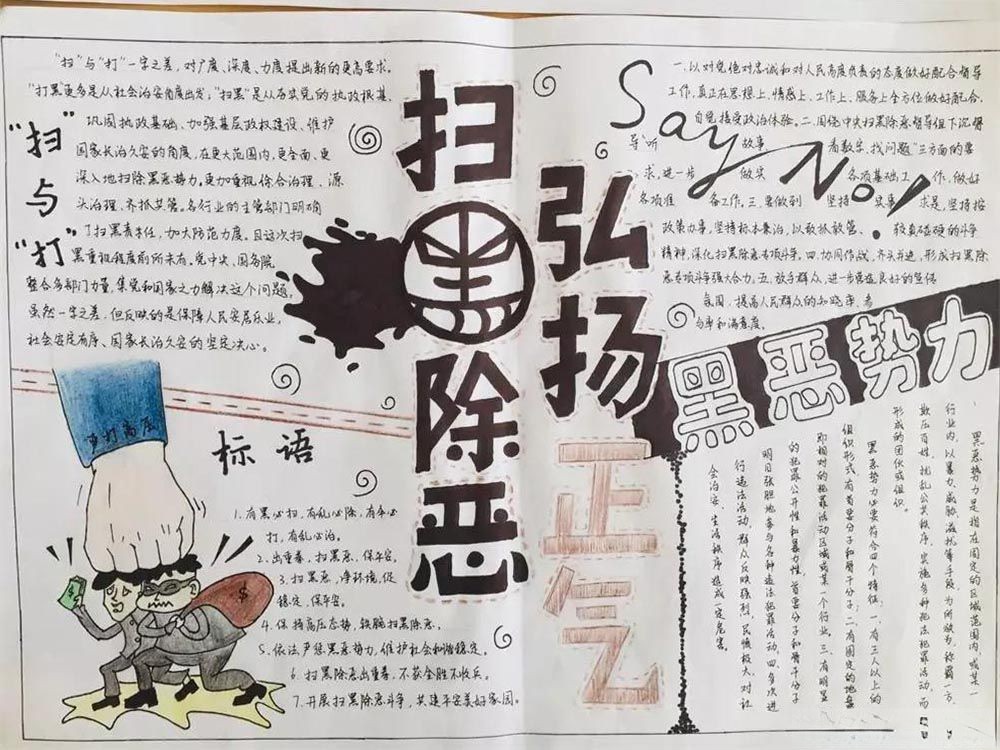 "扫"与"打"一字之差，对广度、深度、力度提出新的更高要求。
"打黑"更多是从社会治安角度出发；"扫黑"是从夯实党的执政根基、
巩固执政基础、加强基层政权建设、维护
国家长治久安的角度，在更大范围内，更全面、更
深入地扫除黑恶势力，更加重视综合治理、源
头治理、齐抓共管。各行业的主管部门明确
了扫黑责任，加大防范力度。且这次扫
黑重视程度前所未有。党中央、国务院
整合多部门力量，集党和国家之力解决这个问题，
虽然一字之差，但反映的是保障人民安居乐业，
社会安定有序、国家长治久安的坚定决心。
"扫"
与
"打"
扫黑除恶
弘扬正气
Say No!
一.以对党绝对忠诚和对人民高度负责的态度做好配合督导
工作，真正在思想上、情感上、工作上、服务上全方位做好配合，
自觉接受政治体验。二.围绕中央扫黑除恶督导组下沉督
导"听 故事， 看数学，找问题"三方面的要
求，进一步 做实 各项基础工 作，做好
各项准 备工作。三.要做到 坚持 实事 求是，坚持按
政策办事，坚持标本兼治，以敢抓敢管、 较真碰硬的斗争
精神，深化扫黑除恶专项斗争。四.协同作战，齐头并进，形成扫黑除
恶专项斗争强大合力。五.放手群众，进一步营造良好的宣传
氛围，提高人民群众的知晓率，参
与率和满意度。
黑恶势力
黑恶势力是指在固定的区域范围内，或某一
行业内，以暴力、威胁、滋扰等手段，为所欲为，称霸一方，
欺压百姓，扰乱公共秩序，实施多种违法犯罪活动，而
形成的团伙或组织。
黑恶势力必要符合四个特征，一.有三人以上的
组织形式，有首要分子和骨干分子；二.有固定的地盘
即相对的犯罪活动区域或某一个行业，三.有明显
的犯罪公开性和暴力性，首要分子和骨干分子
明目张胆地参与各种违法犯罪活动，四.多次进
行违法活动，群众反映强烈，民愤极大，对社
会治安、生活秩序造成一定危害。
重打高压
标语
1.有黑必扫，有乱必除，有伞必
打，有乱必治。
2.出重拳，扫黑恶，保平安。
3.扫黑恶，净环境，促
稳定，保平安。
4.保持高压态势，铁腕扫黑除恶。
5.依法严惩黑恶势力，维护社会和谐稳定。
6.扫黑除恶出重拳，不获全胜不收兵。
7.开展扫黑除恶斗争，共建平安美好家园。
$
$